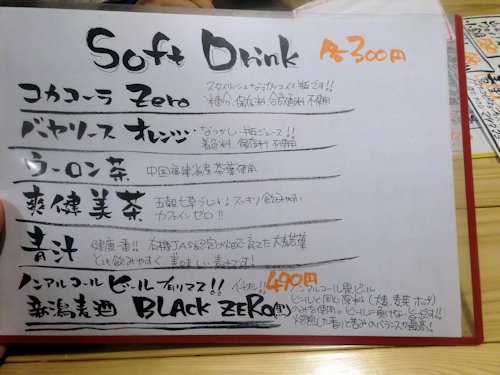 Soft Drink 各300円
コカコーラ Zero
スタイリッシュなカッコイイ瓶です!!
保存料 合成香料 不使用
バヤリース オレンジ
なつかし〜瓶ジュース!!
着色料 保存料 不使用
ウーロン茶 中国福建省産茶葉使用
爽健美茶
五穀七草ブレンド! スッキリ飲みやすい
カフェインゼロ!!
青汁
健康一番!! 有機JAS認定の畑で育てた大麦若葉
とても飲みやすく美味しい青汁です!
ノンアルコールビールアリマス!! イチオシ! 490円
新潟麦酒 BLACK ZERO(黒)
ノンアルコール黒ビール
ビールと同じ原料(大麦 麦芽 ホップ)
のみを使用。ビールに負けない
焙煎した香りと苦みのバランスが最高!!